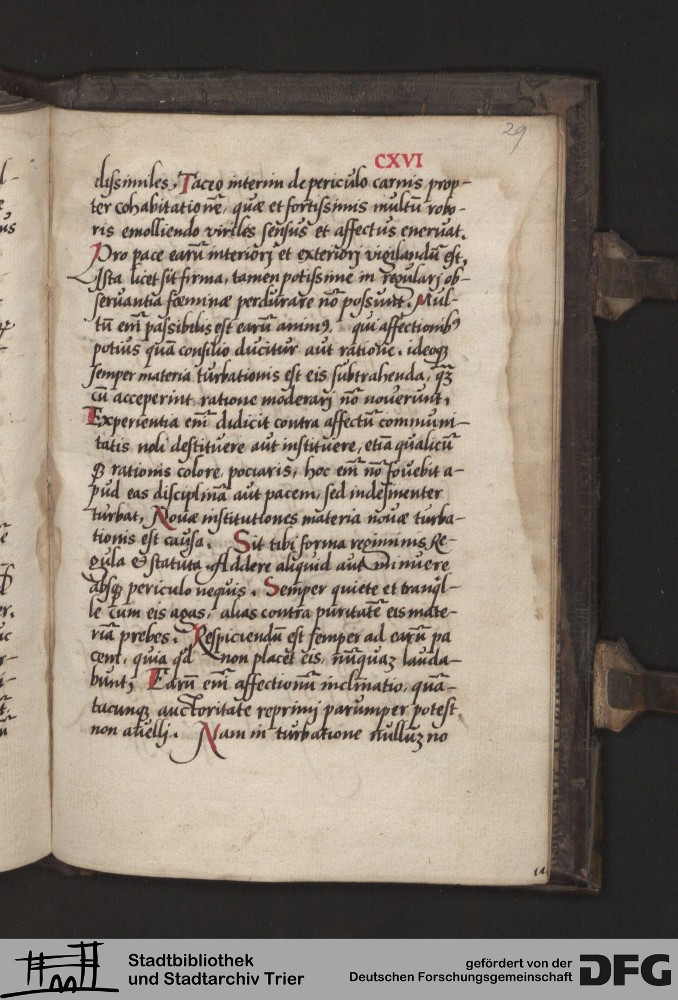 29
CXVI
dissimiles. Taceo interim de periculo carnis prop-
ter cohabitationē, quæ et fortissimis multū robo-
ris emolliendo viriles sensus et affectus eneruat.
Pro pace earū interiorj et exteriorj vigilandū est,
Ista licet sit firma, tamen potissime in regularj ob-
seruantia fœminæ perdurare nō possunt. Mul-
tū em̄ passibilis est earū animꝰ, qui affectionibꝰ
potius quā consilio ducitur aut ratione. ideoqꝫ
semper materia turbationis est eis subtrahenda,
cū acceperint, ratione moderarj nō nouerunt,
Experientia em̄ didicit contra affectū communi-
tatis noli destituere aut instituere, etiā qualicū
qꝫ rationis colore pociaris, hoc em̄ nō fouebit a-
pud eas disciplinā aut pacem, sed indesinenter
turbat, Nouæ institutiones materia nouæ turba-
tionis est causa. Sit tibi forma regiminis Re-
gula & statuta. Addere aliquid aut minuere
absqꝫ periculo nequis. Semper quiete et tranql-
le cum eis agas, alias contra puritatē eis mate-
riā prebes. Respiciendū est semper ad earū pa
cem, quia qd non placet eis, nūquaꝫ lauda-
bunt, Earū em̄ affectionū inclinatio, quā-
tacunqꝫ auctoritate reprimj parumper potest,
non auellj. Nam in turbatione nulluꝫ no
Stadtbibliothek
und Stadtarchiv Trier
gefördert von der
Deutschen Forschungsgemeinschaft
DFG